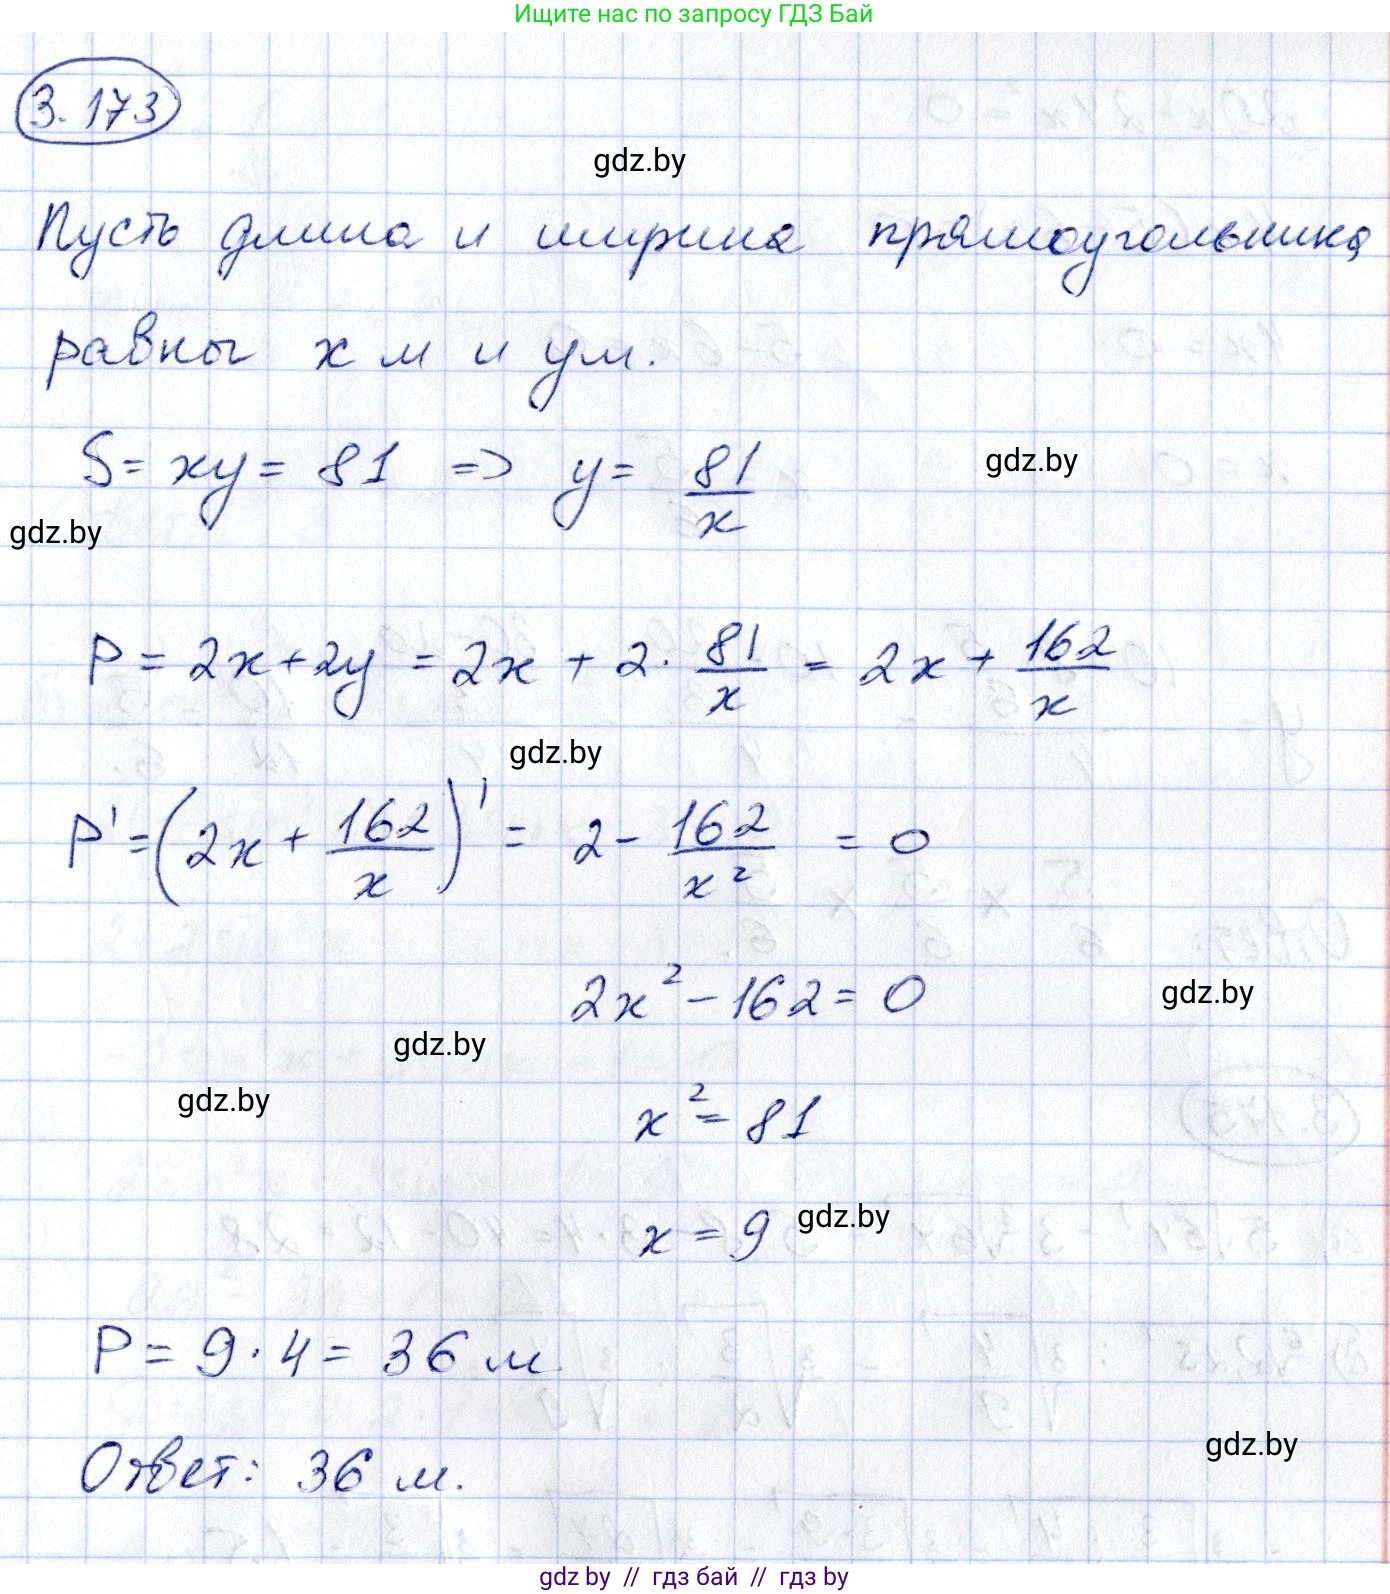 Ищите нас по запросу ГДЗ Бай
3.173
gdz.by
Пусть длина и ширина прямоугольника
равны x м и y м.
S = xy = 81 => y = 81/x
gdz.by
gdz.by
P = 2x + 2y = 2x + 2 · 81/x = 2x + 162/x
gdz.by
P' = (2x + 162/x)' = 2 - 162/x² = 0
2x² - 162 = 0
gdz.by
gdz.by
gdz.by
x² = 81
x = 9
gdz.by
P = 9 · 4 = 36 м
Ответ: 36 м.
gdz.by
gdz by // гдз бай // гдз by